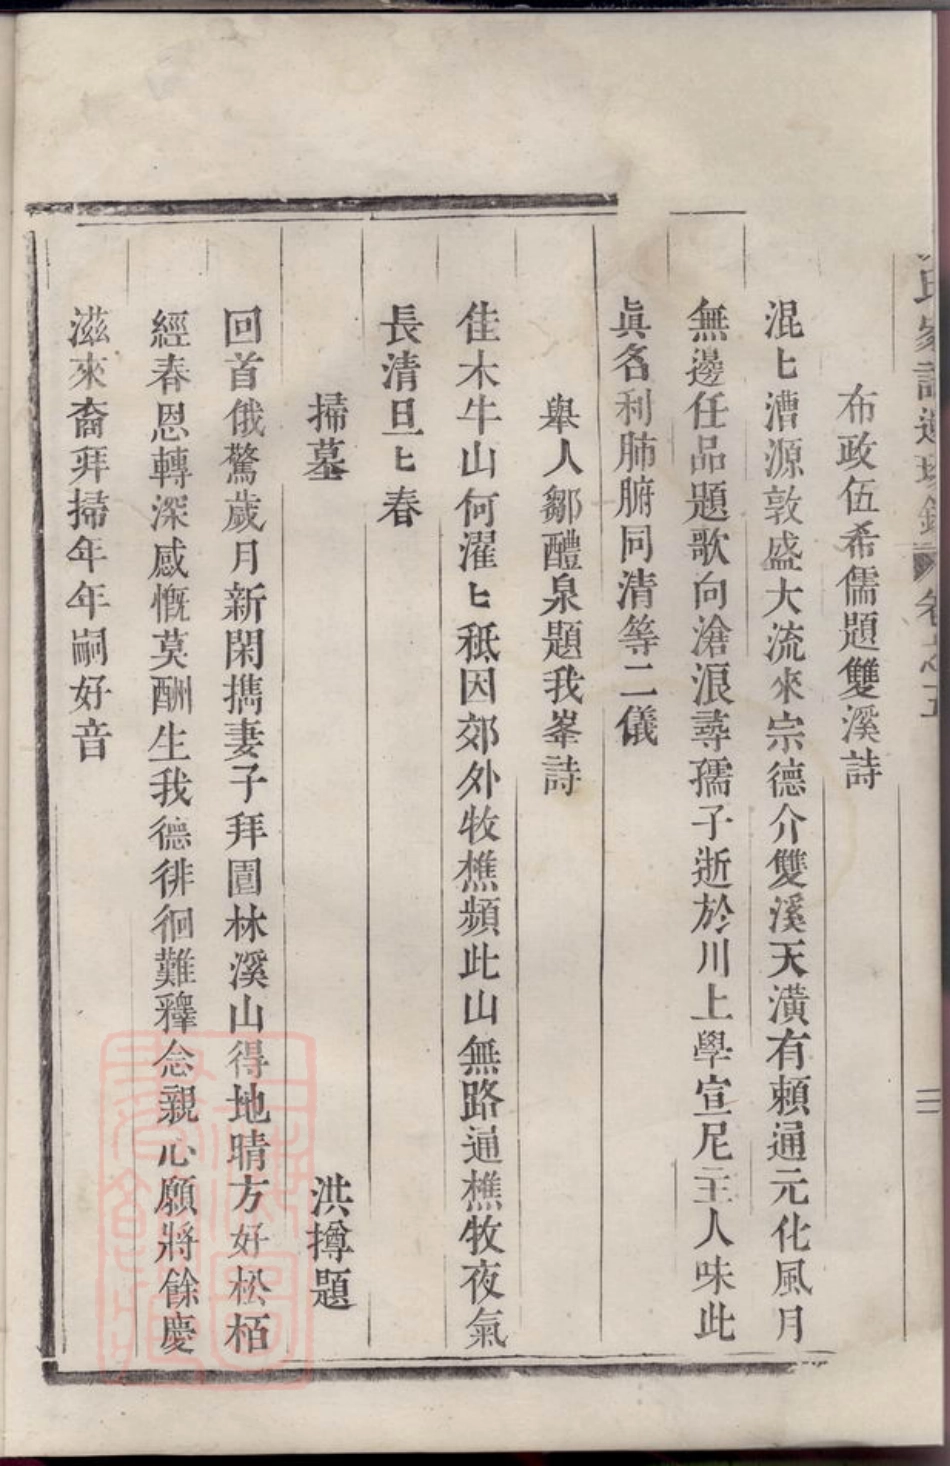 布政伍希儒題雙溪詩
混匕漕源敦盛大流來宗德介雙溪天潢有賴通元化風月
無邊任品題歌向滄浪尋孺子逝於川上學宣尼主人味此
眞名利肺腑同清等二儀
舉人鄒醴泉題我峯詩
佳木牛山何濯匕秪因郊外牧樵頻此山無路通樵牧夜氣
長清旦匕春
掃墓 洪撙題
回首俄驚歲月新閑攜妻子拜園林溪山得地晴方好松栢
經春恩轉深感慨莫酬生我德徘徊難釋念親心願將餘慶
滋來裔拜掃年年嗣好音